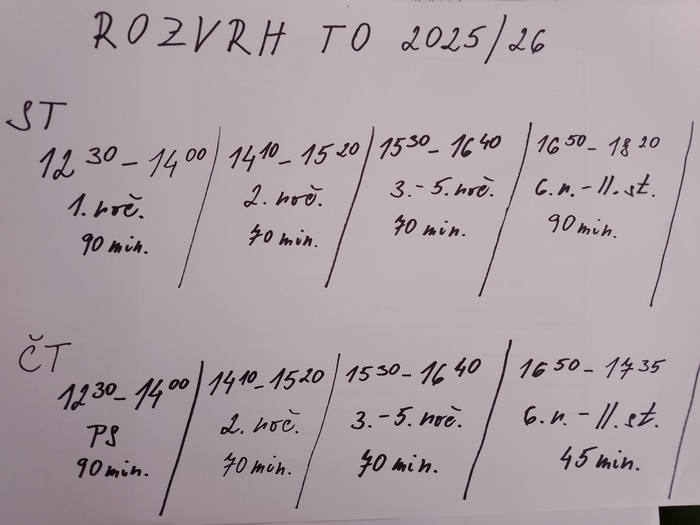 ROZVRH TO 2025/26
ST
12 30 – 14 00
1. roč.
90 min.
14 10 – 15 20
2. roč.
70 min.
15 30 – 16 40
3. – 5. roč.
70 min.
16 50 – 18 20
6. r. – II. st.
90 min.
ČT
12 30 – 14 00
PS
90 min.
14 10 – 15 20
2. roč.
70 min.
15 30 – 16 40
3. – 5. roč.
70 min.
16 50 – 17 35
6. r. – II. st.
45 min.